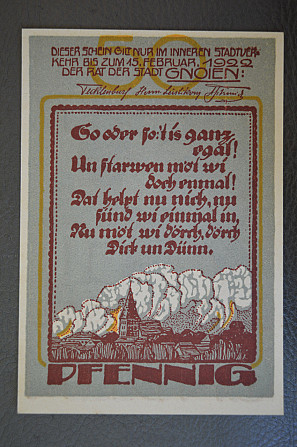 50
DIESER SCHEIN GILT NUR IM INNEREN STADTVER-
KEHR BIS ZUM 15. FEBRUAR. 1922
DER RAT DER STADT GNOIEN:
So oder so: 't is ganz
egal!
Un starwen möt wi
doch enmal!
Dat helpt nu nich, nu
sünd wi einmal in,
Nu möt wi dörch, dörch
Dick un Dünn.
PFENNIG